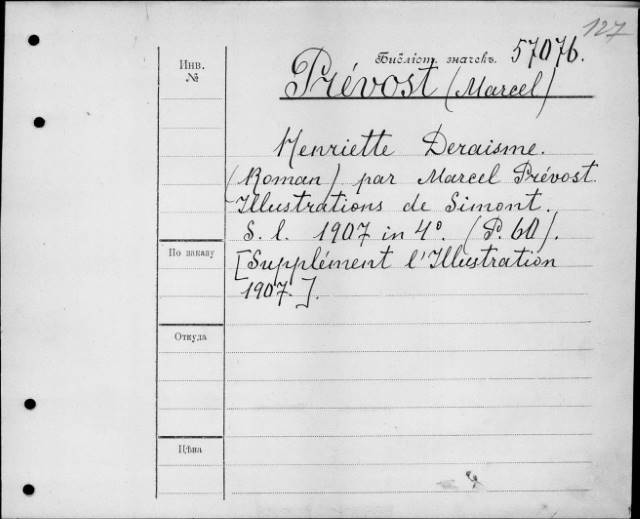 127
Инв.
№
Библіот. значекъ. 57076.
Prévost (Marcel)
Henriette Deraisme.
(Roman) par Marcel Prévost.
Illustrations de Simont.
S. l. 1907 in 4°. (P. 60).
[Supplément l'Illustration
1907.].
По заказу
Откуда
Цѣна